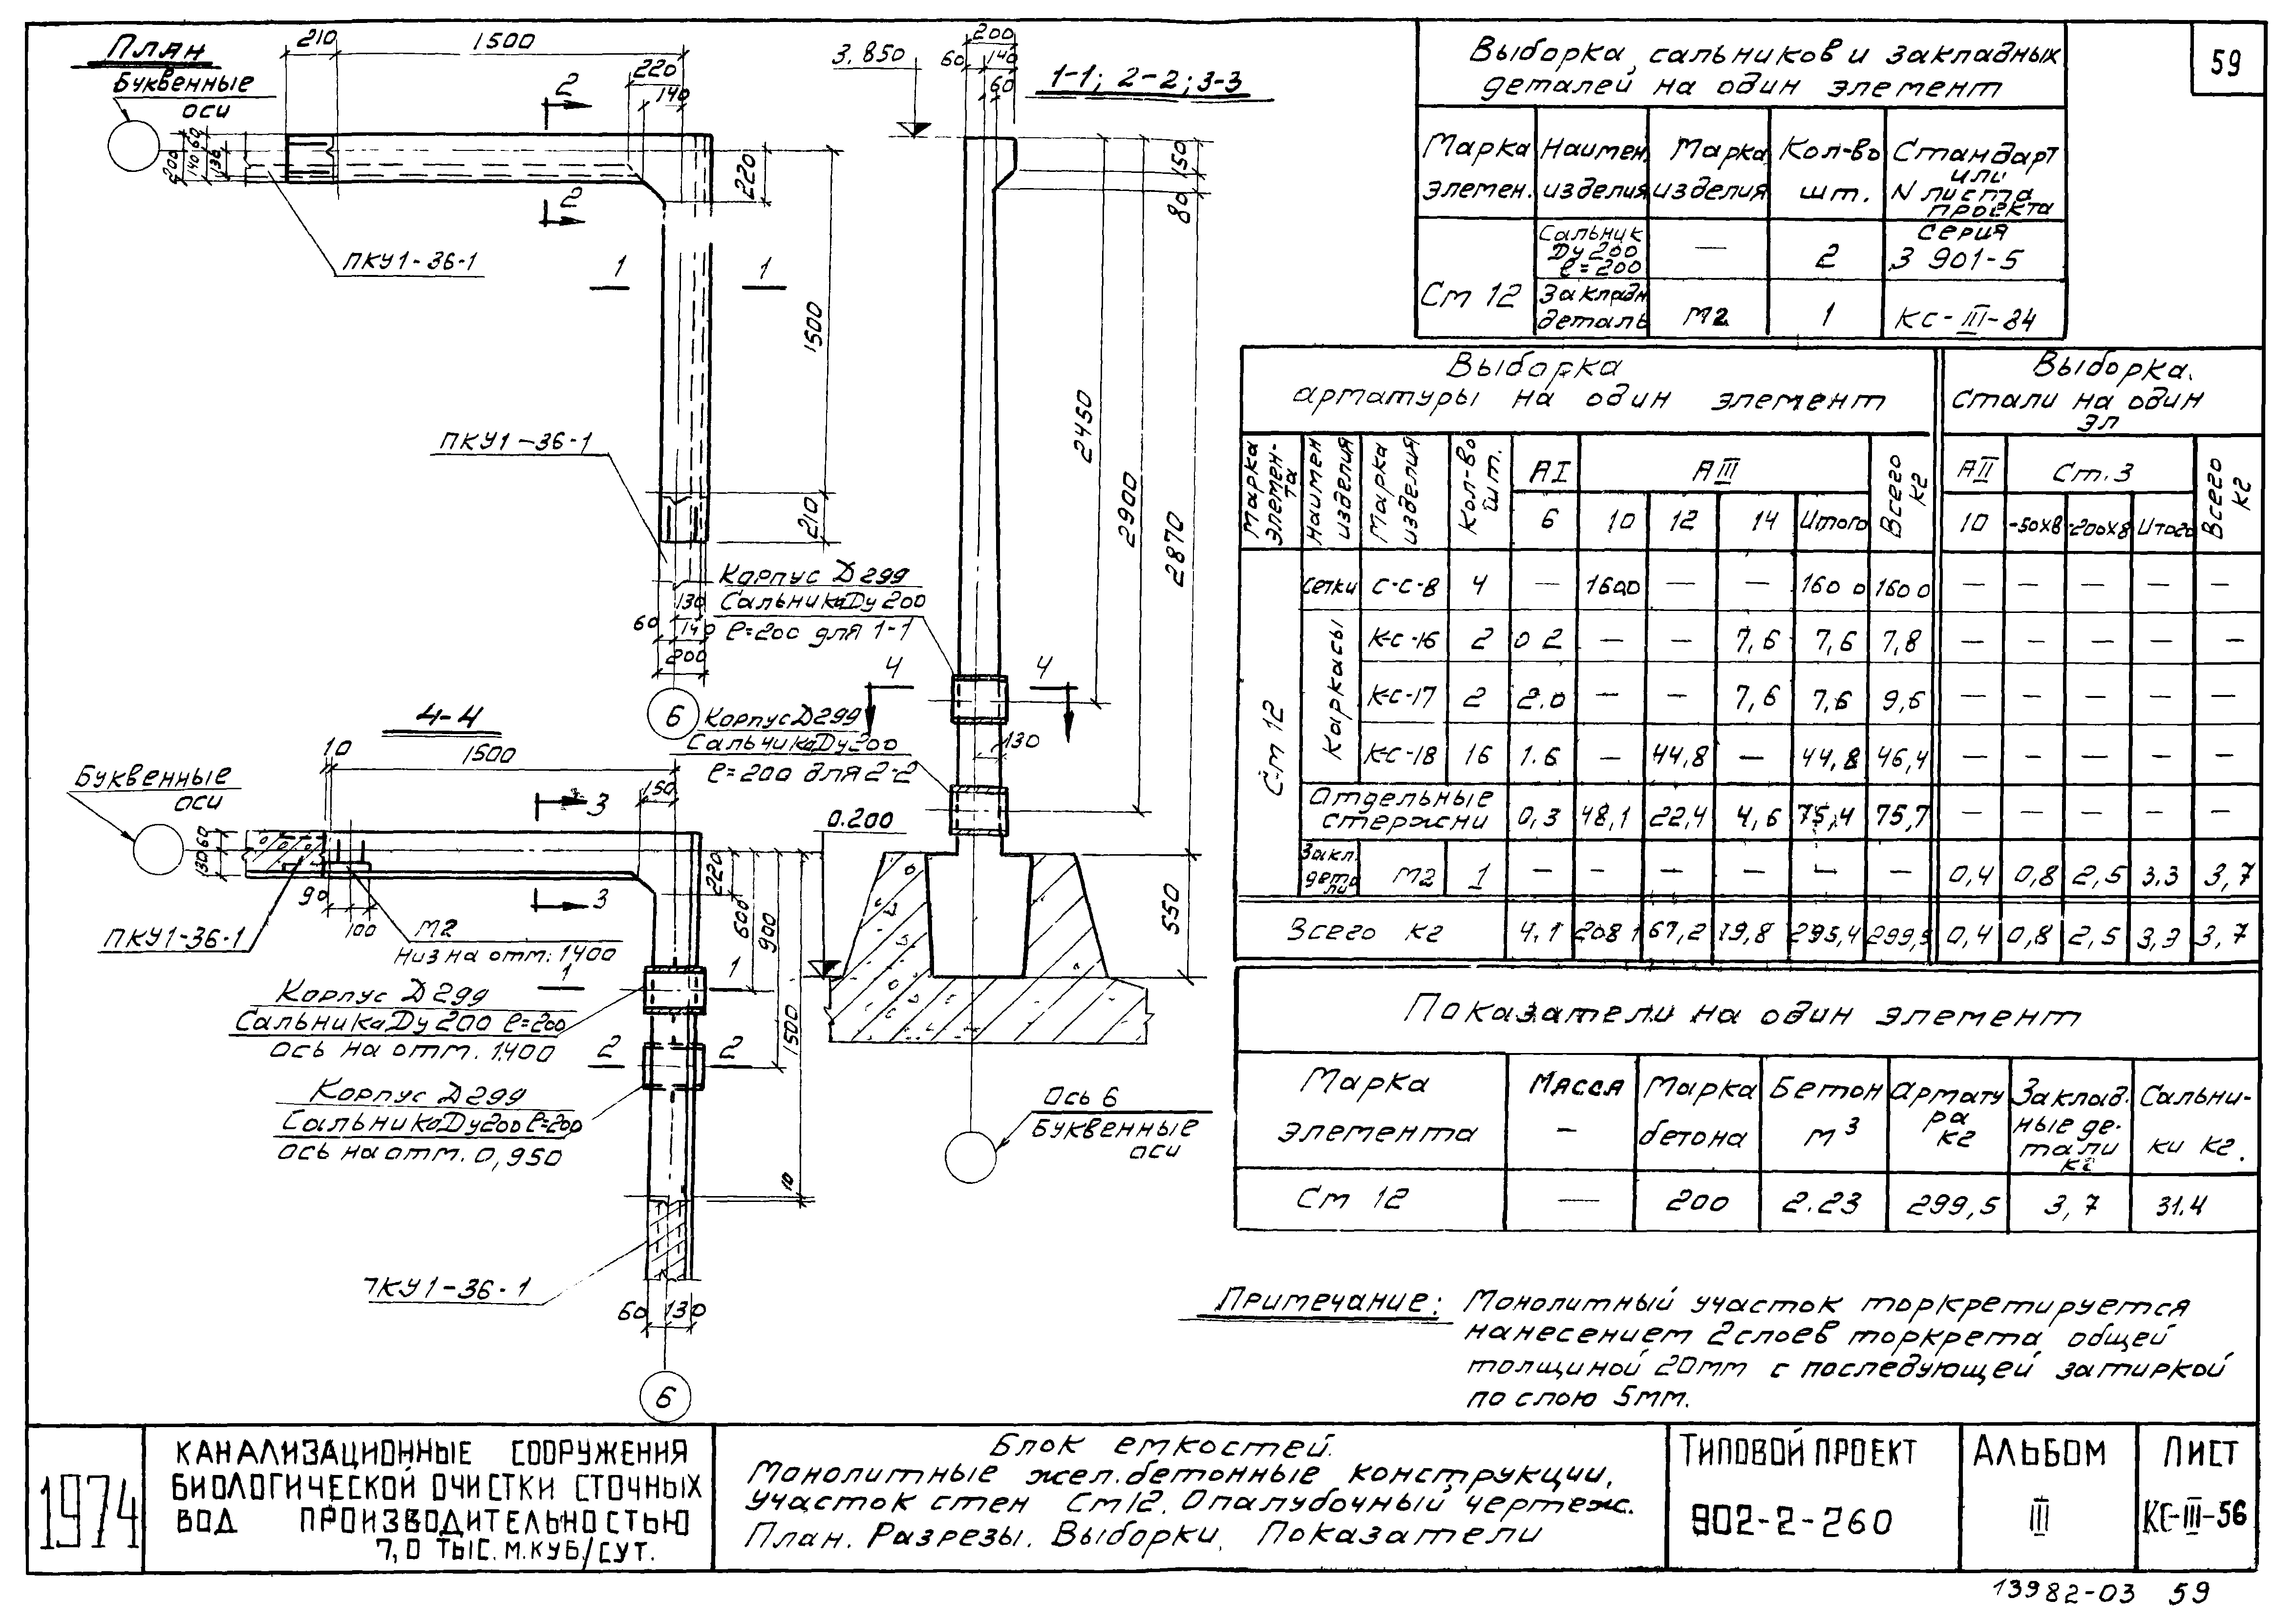 59
План
Буквенные
оси
210
1500
220
140
2
2
200
140
60
136
220
ПКУ1-36-1
1
1
1500
ПКУ1-36-1
210
130
60
140
200
6
3.850
200
60
140
60
1-1; 2-2; 3-3
150
80
2450
2900
2870
550
Корпус Д299
Сальника Ду200
ℓ=200 для 1-1
4
4
Корпус Д299
Сальника Ду200
ℓ=200 для 2-2
130
0.200
Ось 6
Буквенные
оси
4-4
10
1500
Буквенные
оси
150
3
60
130
220
600
900
1500
90
100
3
ПКУ1-36-1
М2
Низ на отм. 1.400
1
1
Корпус Д299
Сальника Ду200 ℓ=200
ось на отм. 1.400
2
2
Корпус Д299
Сальника Ду200 ℓ=200
ось на отм. 0,950
10
ПКУ1-36-1
60
130
6
Выборка сальников и закладных
деталей на один элемент
Марка элемен. | Наимен. изделия | Марка изделия | Кол-во шт. | Стандарт или N листа проекта
Ст 12 | Сальник Ду 200 ℓ=200 | — | 2 | Серия 3 901-5
Закладн. деталь | М2 | 1 | КС-III-34
Выборка
арматуры на один элемент
Выборка
стали на один
эл
Марка элемен-та | Наимен изделия | Марка изделия | Кол-во шт. | АI | АIII | Всего кг | АII | Ст.3 | Всего кг
6 | 10 | 12 | 14 | Итого | 10 | -50х8 | -200х8 | Итого
Ст 12
Сетки | С-С-8 | 4 | — | 160.0 | — | — | 160 0 | 160 0 | — | — | — | — | —
Каркасы
К-С-16 | 2 | 0 2 | — | — | 7,6 | 7,6 | 7,8 | — | — | — | — | —
К-С-17 | 2 | 2.0 | — | — | 7,6 | 7,6 | 9,6 | — | — | — | — | —
К-С-18 | 16 | 1.6 | — | 44,8 | — | 44,8 | 46,4 | — | — | — | — | —
Отдельные стержни | 0,3 | 48,1 | 22,4 | 4,6 | 75,4 | 75,7 | — | — | — | — | —
Закл. дета ли | М2 | 1 | — | — | — | — | — | — | 0,4 | 0,8 | 2,5 | 3,3 | 3,7
Всего кг | 4.1 | 208 1 | 67,2 | 19,8 | 295,4 | 299,5 | 0,4 | 0,8 | 2,5 | 3,3 | 3,7
Показатели на один элемент
Марка элемента | Масса — | Марка бетона | Бетон м³ | Армату ра кг | Заклад. ные де- тали кг | Сальни- ки кг.
Ст 12 | — | 200 | 2.23 | 299,5 | 3,7 | 31.4
Примечание: Монолитный участок торкретируется
нанесением 2 слоев торкрета общей
толщиной 20мм с последующей затиркой
по слою 5мм.
1974
КАНАЛИЗАЦИОННЫЕ СООРУЖЕНИЯ
БИОЛОГИЧЕСКОЙ ОЧИСТКИ СТОЧНЫХ
ВОД ПРОИЗВОДИТЕЛЬНОСТЬЮ
7,0 ТЫС. М.КУБ./СУТ.
Блок емкостей.
Монолитные жел.бетонные конструкции,
участок стен Ст12. Опалубочный чертеж.
План. Разрезы. Выборки. Показатели
ТИПОВОЙ ПРОЕКТ
902-2-260
АЛЬБОМ
III
ЛИСТ
КС-III-56
13982-03 59